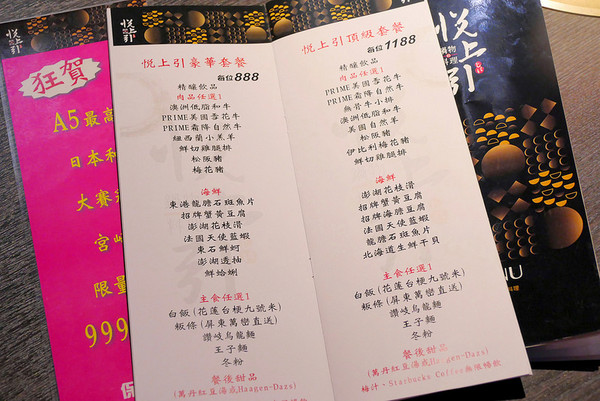 悅上引
狂賀
A5最高
日本和
大賽
宮崎
限量
999
悅上引豪華套餐
每位888
精釀飲品
肉品任選1
澳洲低脂和牛
PRIME美國雪花牛
PRIME霜降自然牛
紐西蘭小羔羊
鮮切雞腿排
松阪豬
梅花豬
海鮮
東港龍膽石斑魚片
招牌蟹黃豆腐
澎湖花枝滑
法國天使藍蝦
東石鮮蚵
澎湖透抽
鮮蛤蜊
主食任選1
白飯(花蓮台梗九號米)
粄條(屏東萬巒直送)
讚岐烏龍麵
王子麵
冬粉
餐後甜品
(萬丹紅豆湯或Haagen-Dazs)
悅上引頂級套餐
每位1188
精釀飲品
肉品任選1
PRIME美國雪花牛
PRIME霜降自然牛
無骨牛小排
澳洲低脂和牛
美國自然羊
松阪豬
伊比利梅花豬
鮮切雞腿排
海鮮
澎湖花枝滑
招牌蟹黃豆腐
招牌海膽豆腐
法國天使藍蝦
龍膽石斑魚片
北海道生鮮干貝
主食任選1
白飯(花蓮台梗九號米)
粄條(屏東萬巒直送)
讚岐烏龍麵
王子麵
冬粉
餐後甜品
(萬丹紅豆湯或Haagen-Dazs)
梅汁、Starbucks Coffee無限暢飲
悅上引
鍋物
料理
NU